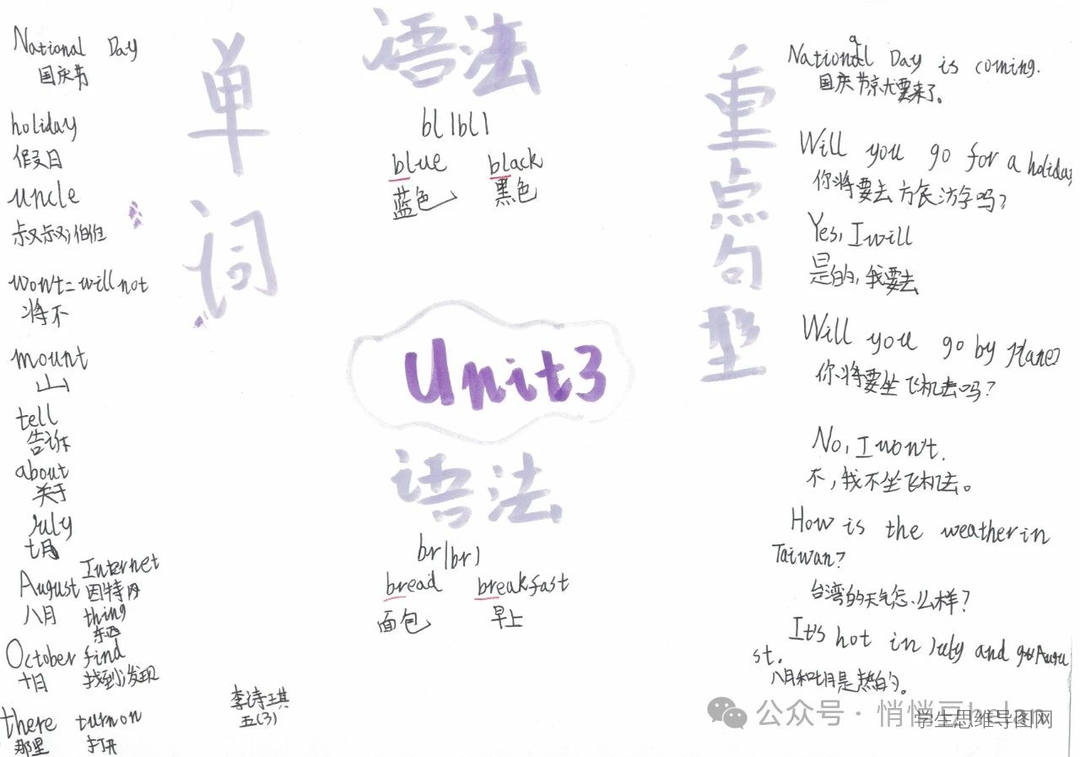 National Day
国庆节
holiday
假日
uncle
叔叔,伯伯
won't=will not
将不
mount
山
tell
告诉
about
关于
July
七月
Internet
因特网
August
八月
thing
东西
October
十月
find
找到,发现
there
那里
turn on
打开
单词
李诗琪
五(3)
语法
bl|bl|
blue black
蓝色 黑色
Unit3
语法
br|br|
bread breakfast
面包 早上
重点句型
National Day is coming.
国庆节就要来了。
Will you go for a holiday
你将要去
吗?
Yes, I will
是的,我要去
Will you go by plane?
你将要坐飞机去吗?
No, I won't.
不,我不坐飞机去。
How is the weather in
Taiwan?
台湾的天气怎么样?
It's hot in July and Augu
st.
八月和七月是热的。
公众号·悄悄豆
学生思维导图网